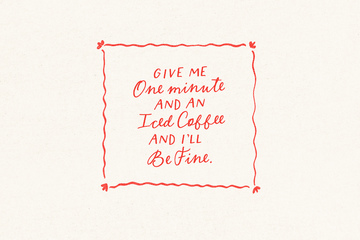 GIVE ME
One minute
AND AN
Iced Coffee
AND I'LL
Be Fine.